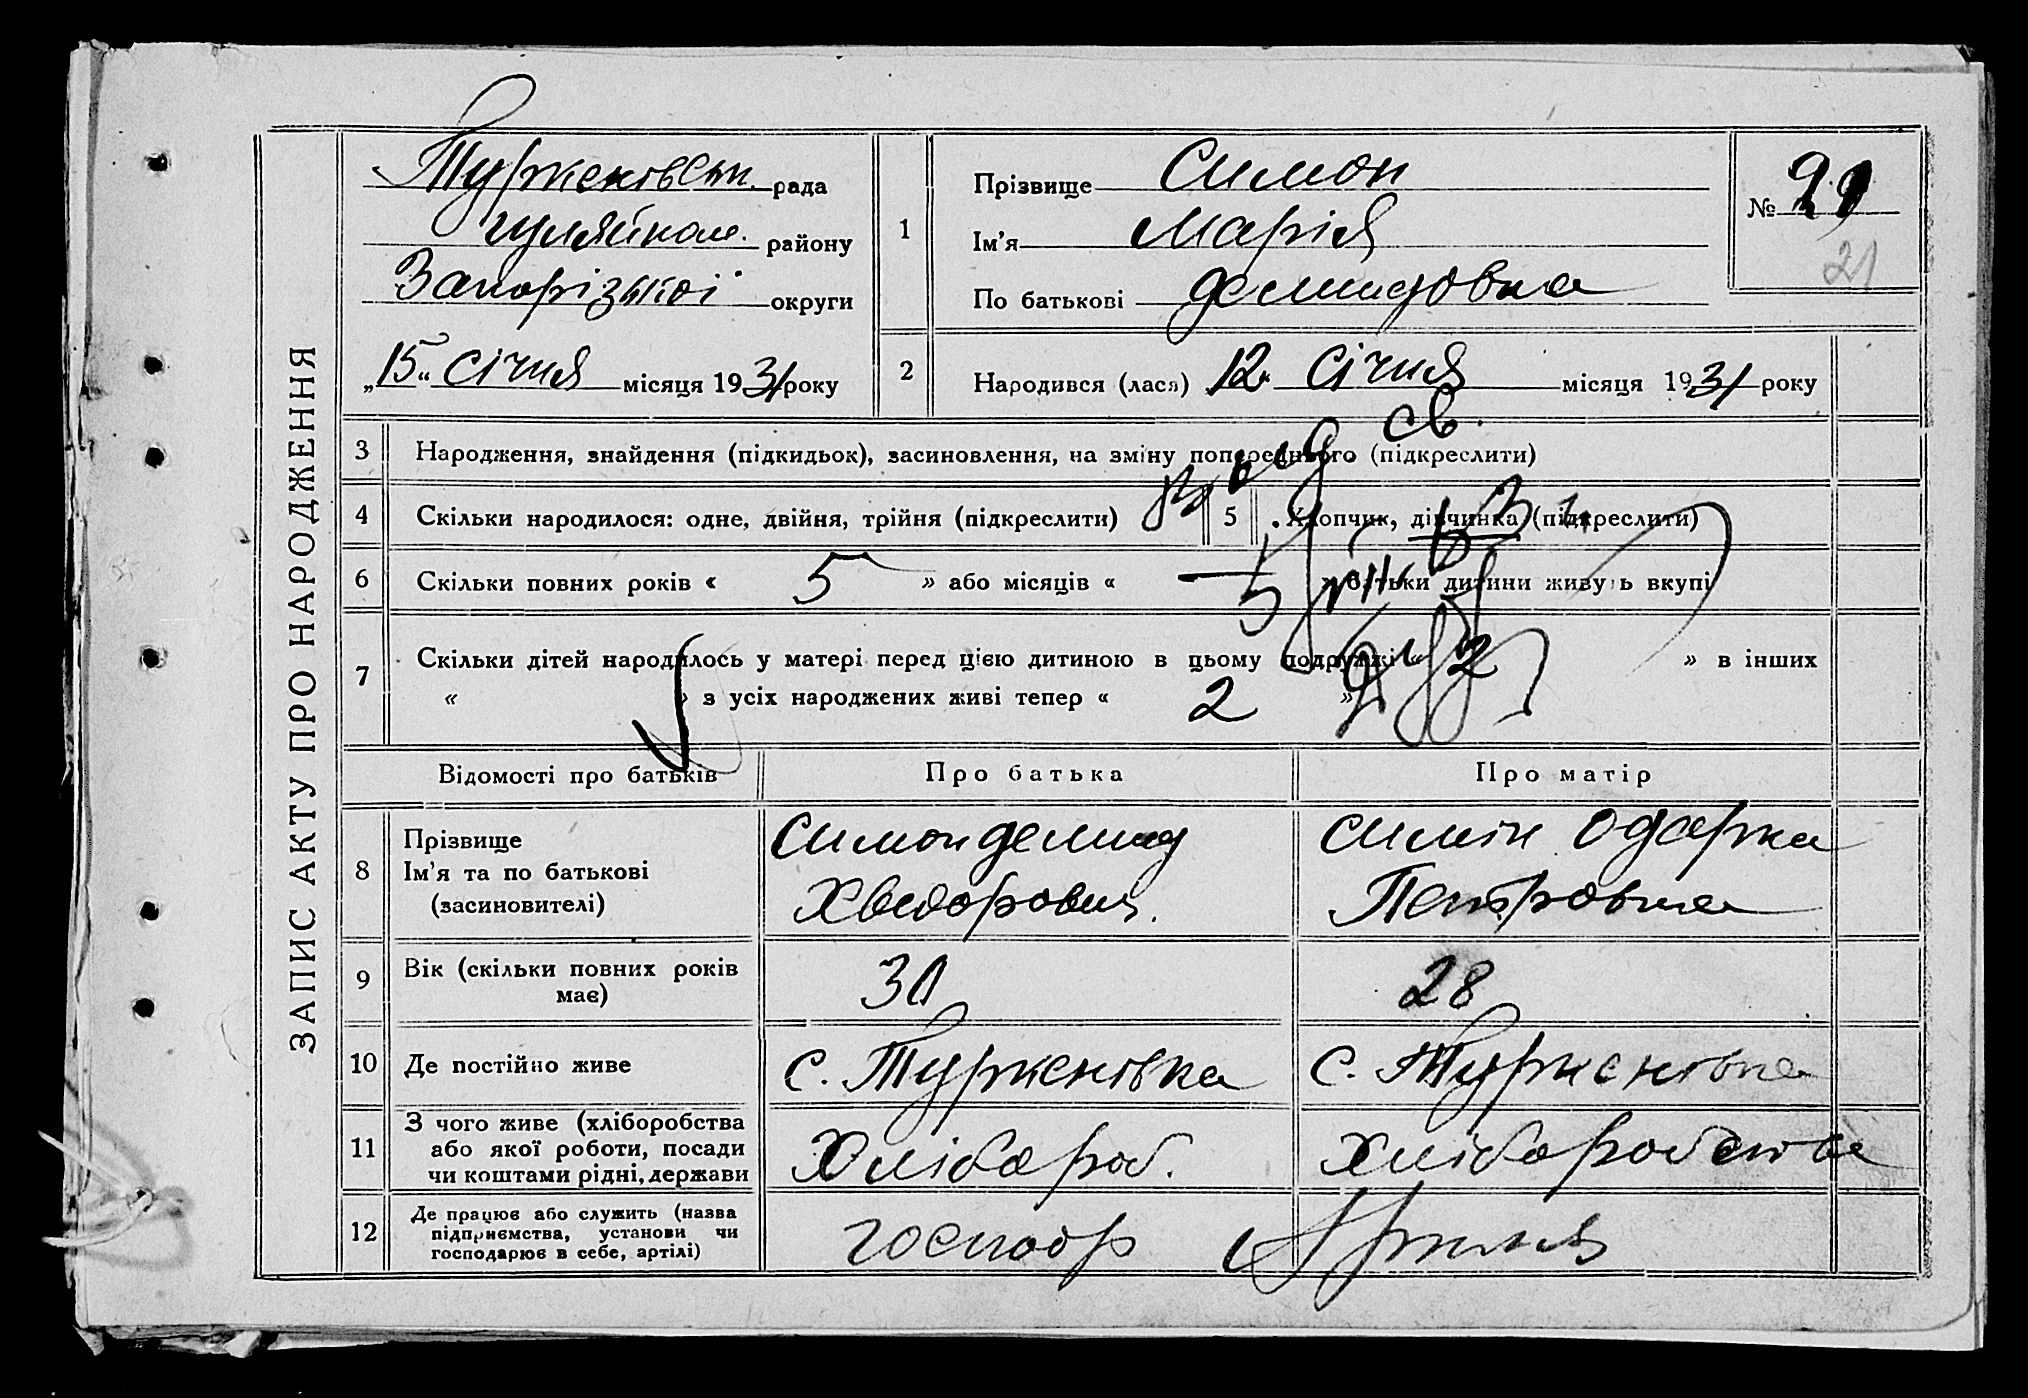 ЗАПИС АКТУ ПРО НАРОДЖЕННЯ
Турженівськ. рада
Гуляйпол. району
Запорізької округи
„15“ січня місяця 1931 року
1
Прізвище Симон
Ім'я Марія
По батькові Демидовна
№ 21
21
2
Народився (лася) 12 січня місяця 1931 року
3 Народження, знайдення (підкидьок), засиновлення, на зміну попереднього (підкреслити)
св.
4 Скільки народилося: одне, двійня, трійня (підкреслити)
5 Хлопчик, дівчинка (підкреслити)
6 Скільки повних років « 5 » або місяців « — » батьки дитини живуть вкупі
7 Скільки дітей народилось у матері перед цією дитиною в цьому подружжі « 2 » в інших
« » з усіх народжених живі тепер « 2 »
Відомості про батьків
Про батька
Про матір
8 Прізвище
Ім'я та по батькові
(засиновителі)
Симон Демид
Хведорович.
Симон Одарка
Петровна
9 Вік (скільки повних років
має)
30
28
10 Де постійно живе
с. Турженівка
с. Турженівка
11 З чого живе (хліборобства
або якої роботи, посади
чи коштами рідні, держави
Хлібороб.
Хліборобства
12 Де працює або служить (назва
підприємства, установи чи
господарює в себе, артілі)
господр